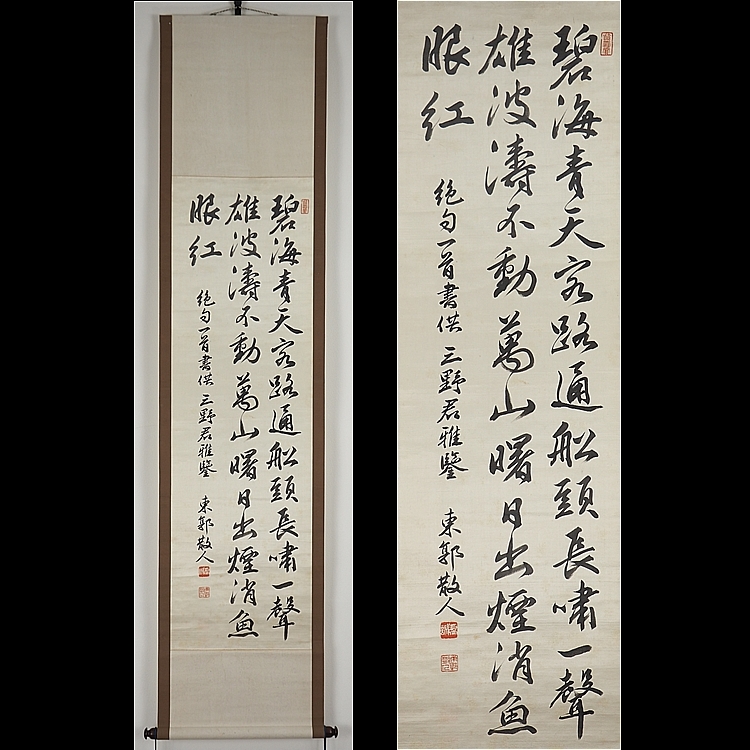 碧海青天客路通船頭長嘯一聲
雄波濤不動萬山曙日出煙消魚
眼紅
絶句一首書供 三野君雅鑒 東郭散人
碧海青天客路通船頭長嘯一聲
雄波濤不動萬山曙日出煙消魚
眼紅
絶句一首書供 三野君雅鑒 東郭散人